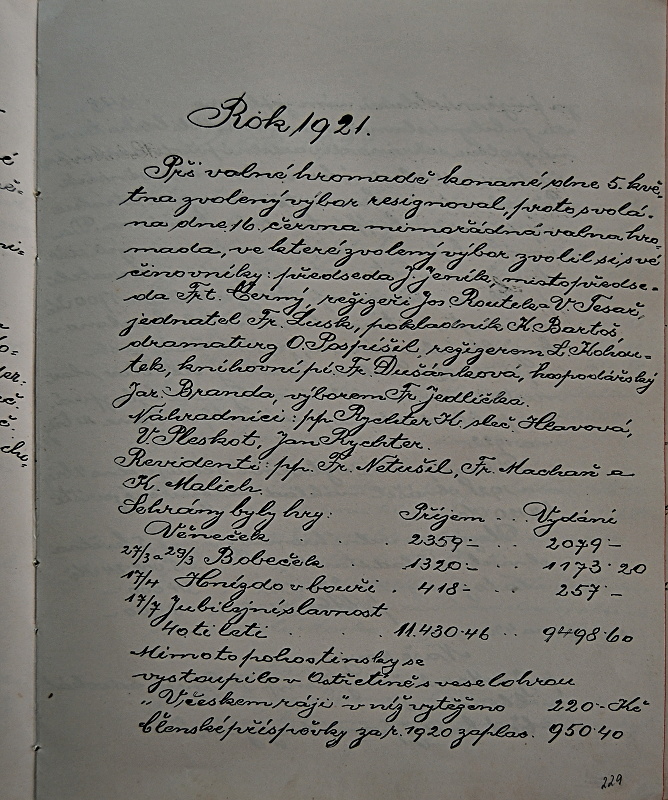 Rok 1921.
Při valné hromadě konané dne 5. kvě-
tna zvolený výbor resignoval, proto svolá-
na dne 16. června mimořádná valna hro-
mada, ve které zvolený výbor zvolil si své
činovníky: předseda J. Jeník, místopředse-
da Frt. Černý, režizeři Jos Routek a V. Tesař,
jednatel Fr. Lusk, pokladník K. Bartoš,
dramaturg O. Pospíšil, režigerem L. Kohou-
tek, knihovní pí Fr. Dušánková, hospodářský
Jar. Branda, výborem Fr. Jedlička.
Náhradníci: pp. Rychter K. sleč. Hlavová,
V. Pleskot, Jan Rychter.
Revidenti: pp. Fr. Netušil, Fr. Machaň a
K. Malich.
Sehrány byly hry: Příjem . . . Vydání
Věneček . . 2359 — . . 2079 —
27/3 a 29/3 Bobeček . 1320 — . . 1173 · 20
17/4 Hnízdo v bouři . 418 — . . 257 —
17/7 Jubilejní slavnost
40ti letí . . . 11.430·46 . . 9498·60
Mimoto pohostinsky se
vystoupilo v Ostřetíně s veselohrou
„V českem ráji" v níž vytěženo 220 — Kč
Členské příspěvky za r. 1920 zaplac. 950·40
229